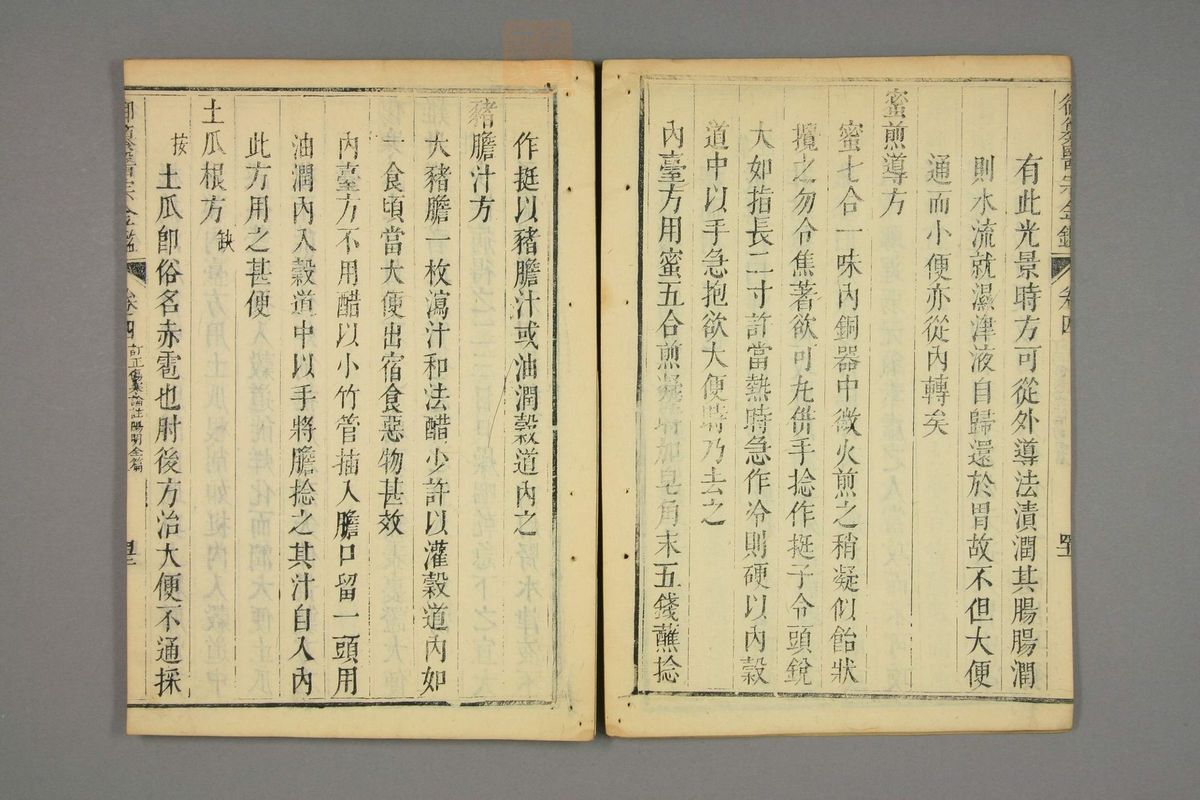 有此光景時方可從外導法漬潤其腸腸潤
則水流就濕津液自歸還於胃故不但大便
通而小便亦從內轉矣
蜜煎導方
蜜七合一味內銅器中微火煎之稍凝似飴狀
攪之勿令焦著欲可丸併手捻作挺子令頭銳
大如指長二寸許當熱時急作冷則硬以內榖
道中以手急抱欲大便時乃去之
內臺方用蜜五合煎凝時加皂角末五錢蘸捻
作挺以豬膽汁或油潤榖道內之
豬膽汁方
大豬膽一枚瀉汁和法醋少許以灌榖道內如
一食頃當大便出宿食惡物甚效
內臺方不用醋以小竹管插入膽口留一頭用
油潤內入榖道中以手將膽捻之其汁自入內
此方用之甚便
土瓜根方 缺
按土瓜卽俗名赤雹也肘後方治大便不通採
御纂醫宗金鑑 卷四 訂正傷寒論註陽明全篇